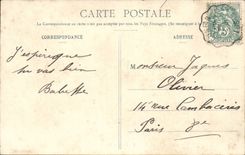 CARTE POSTALE
La Correspondance au recto n'est pas acceptée par tous les Pays Étrangers.
CORRESPONDANCE
ADRESSE
J'espère que
tu vas bien
Babette
Monsieur Jaques
Olivier
14 rue Cambacérès
Paris 8e